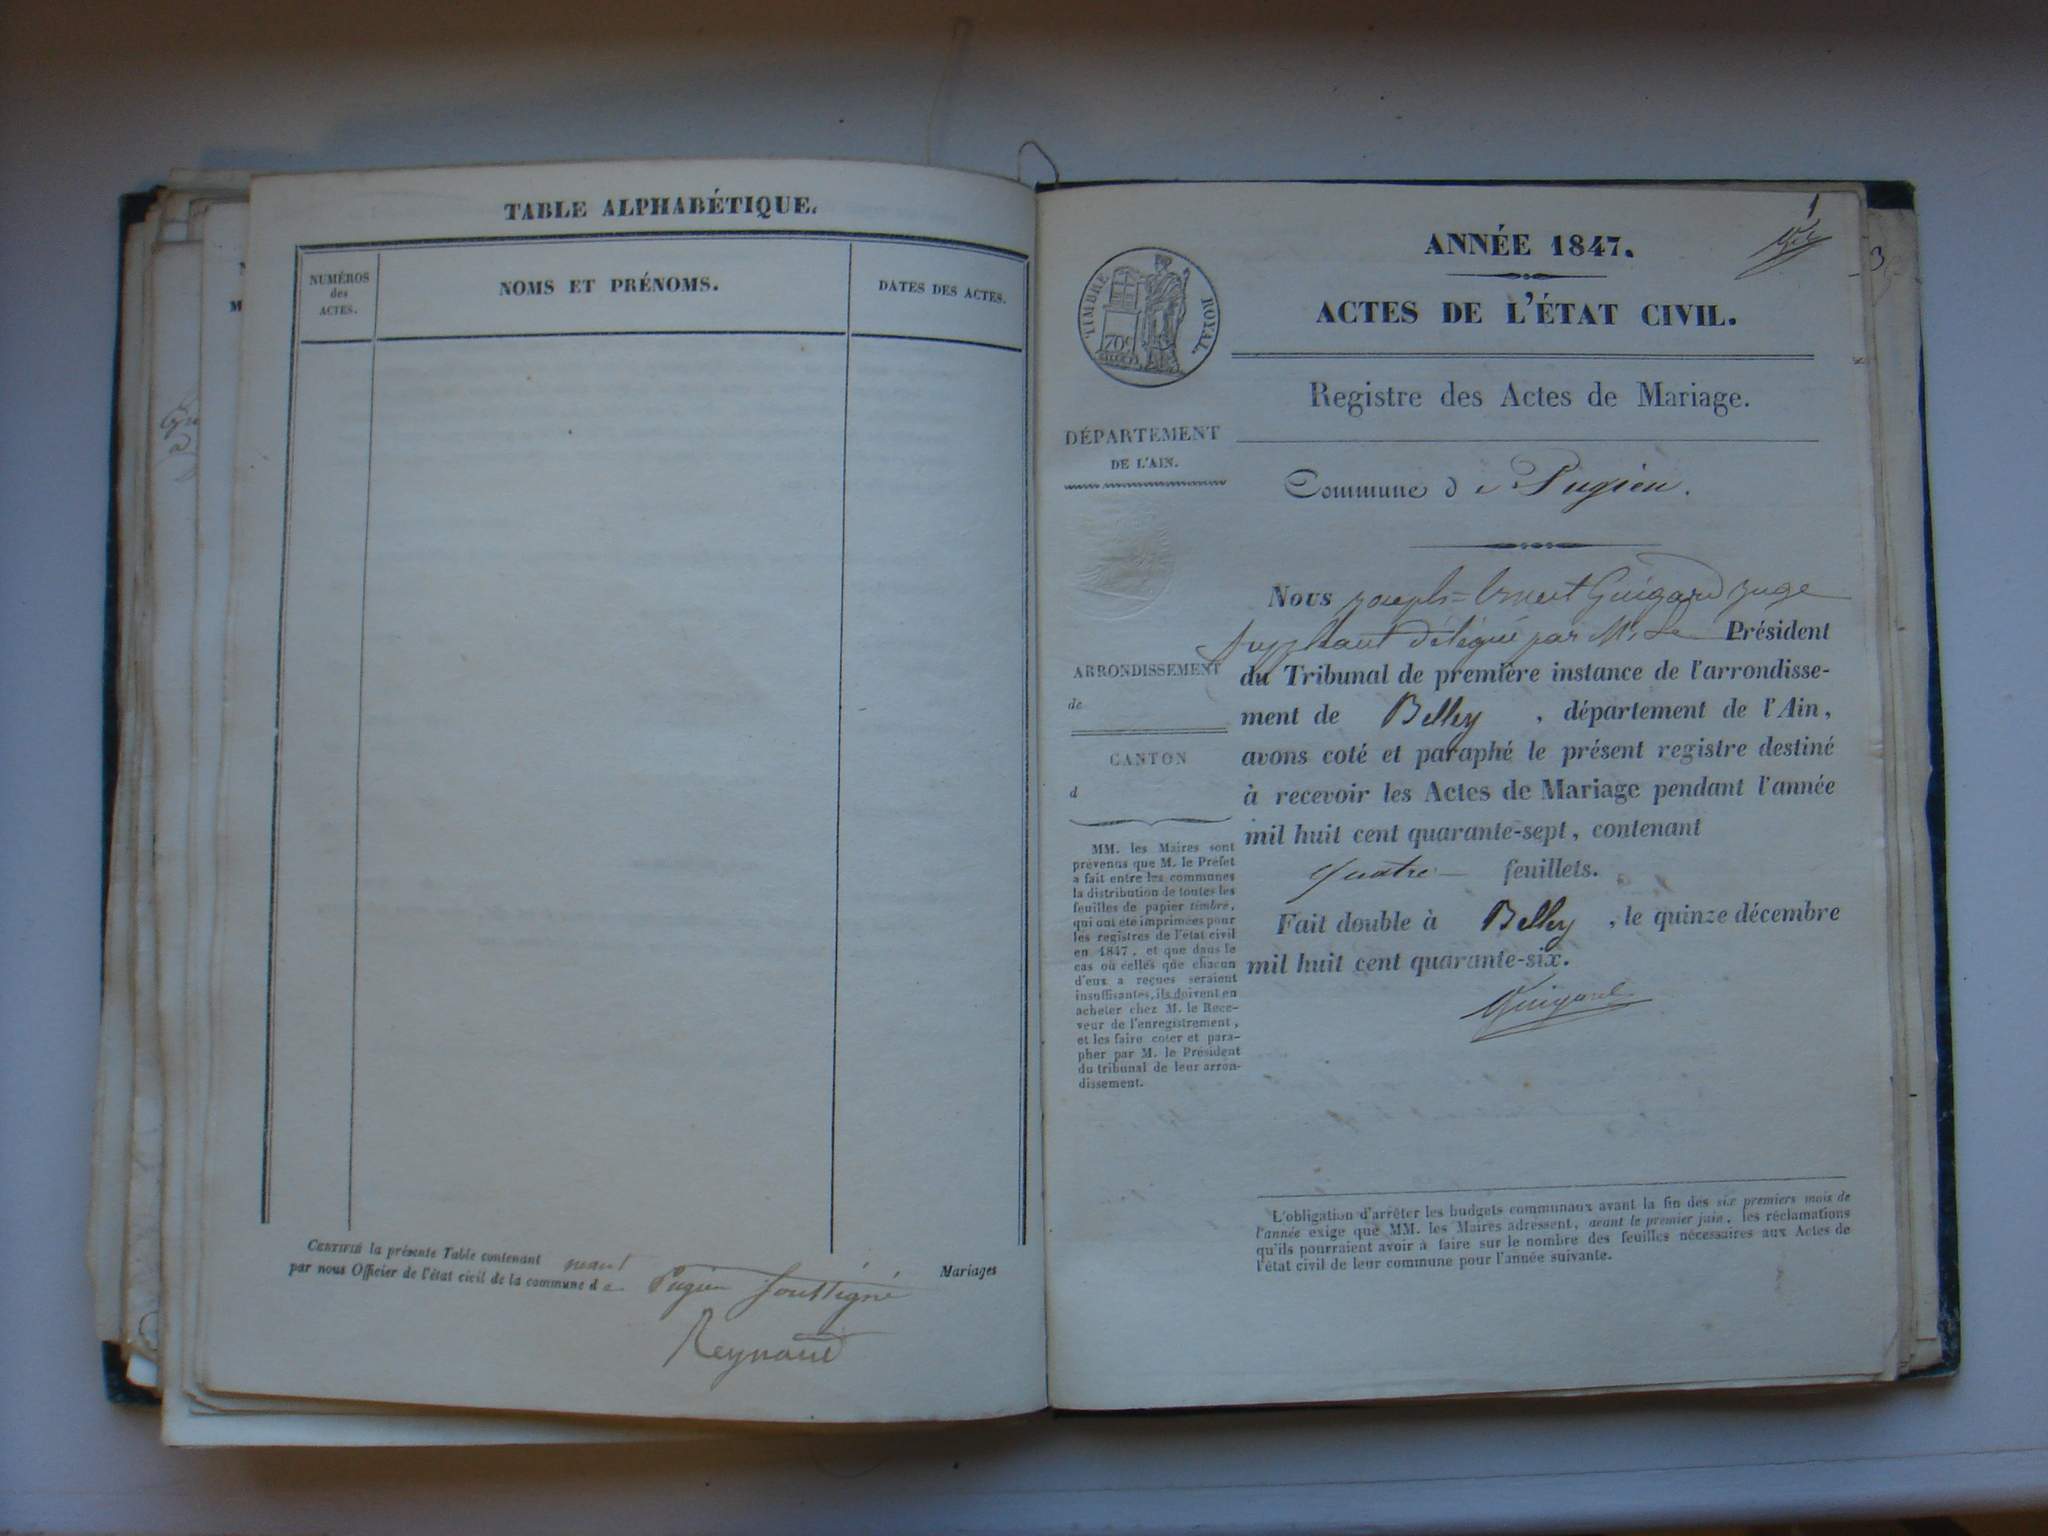 TABLE ALPHABÉTIQUE.
NUMÉROS
des
ACTES.
NOMS ET PRÉNOMS.
DATES DES ACTES.
CERTIFIÉ la présente Table contenant néant Mariages
par nous Officier de l'état civil de la commune de Pugieu soussigné
Reynaud
1
3
ANNÉE 1847.
ACTES DE L'ÉTAT CIVIL.
TIMBRE ROYAL.
70c
Registre des Actes de Mariage.
DÉPARTEMENT
DE L'AIN.
Commune de Pugieu.
Nous joseph= Guigard juge
suppléant délégué par Mr Le Président
du Tribunal de première instance de l'arrondisse-
ment de Belley, département de l'Ain,
avons coté et paraphé le présent registre destiné
à recevoir les Actes de Mariage pendant l'année
mil huit cent quarante-sept, contenant
quatre feuillets.
Fait double à Belley, le quinze décembre
mil huit cent quarante-six.
Guigard
ARRONDISSEMENT
de
CANTON
d
MM. les Maires sont
prévenus que M. le Préfet
a fait entre les communes
la distribution de toutes les
feuilles de papier timbré,
qui ont été imprimées pour
les registres de l'état civil
en 1847, et que dans le
cas où celles que chacun
d'eux a reçues seraient
insuffisantes, ils doivent en
acheter chez M. le Rece-
veur de l'enregistrement,
et les faire coter et para-
pher par M. le Président
du tribunal de leur arron-
dissement.
L'obligation d'arrêter les budgets communaux avant la fin des six premiers mois de
l'année exige que MM. les Maires adressent, avant le premier juin, les réclamations
qu'ils pourraient avoir à faire sur le nombre des feuilles nécessaires aux Actes de
l'état civil de leur commune pour l'année suivante.